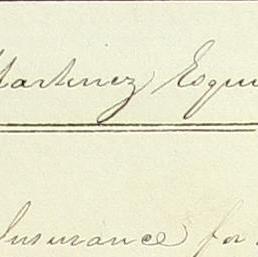 Martinez Esqui
Insurance for